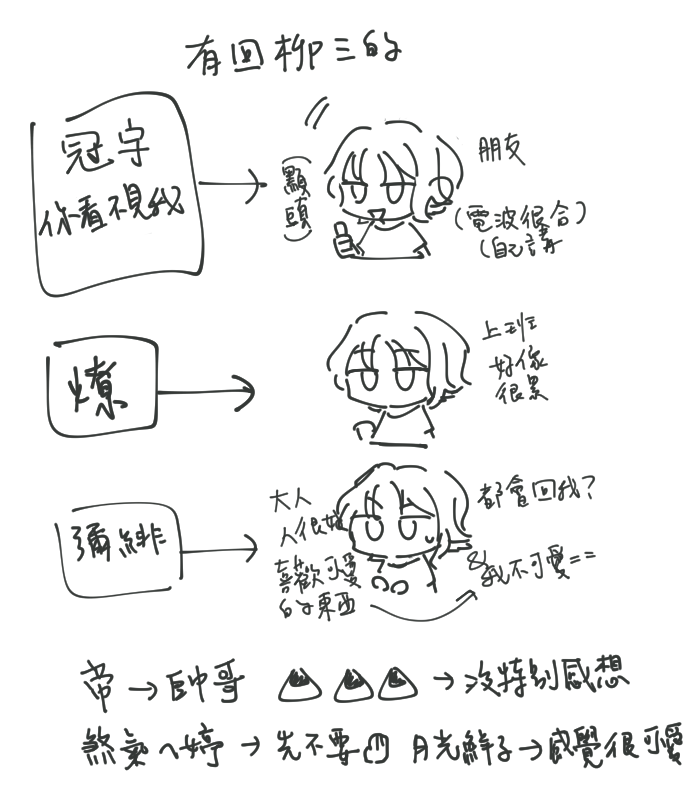 有回柳三的
冠宇
你看不見我
(點頭)
朋友
(電波很合)
(自己講
燎
上班
好像
很累
彌緋
大人
人很好
喜歡可愛
的東西
都會回我?
我不可愛==
常→帥哥 → 沒特別感想
煞氣ㄟ婷→先不要 月光鮮子→感覺很可愛